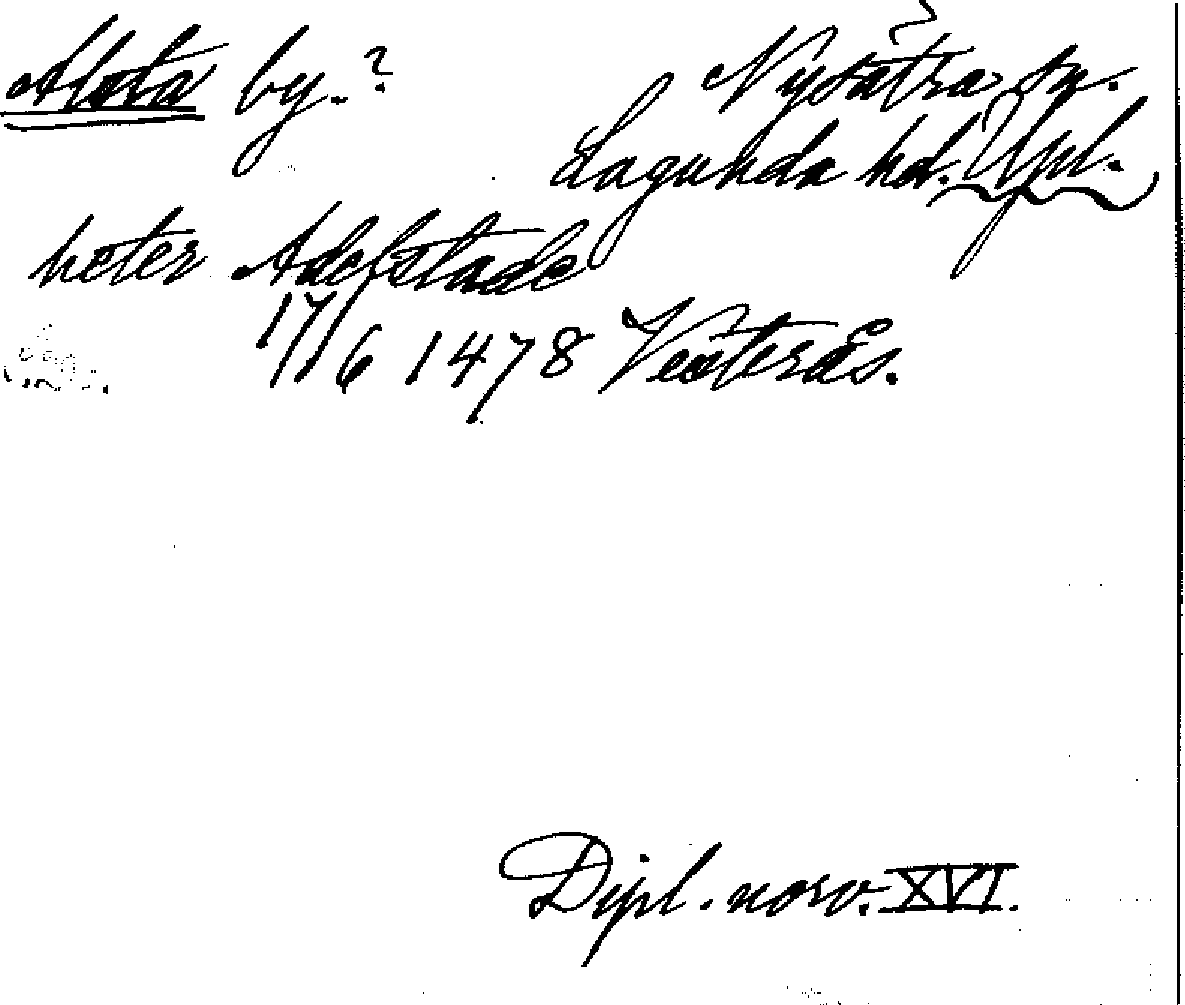 Alsta by.? Nysätra sn.
Lagunda hd. Upl.
heter Adelfstade
17/6 1478 Vesterås.
Dipl. norv. XVI.